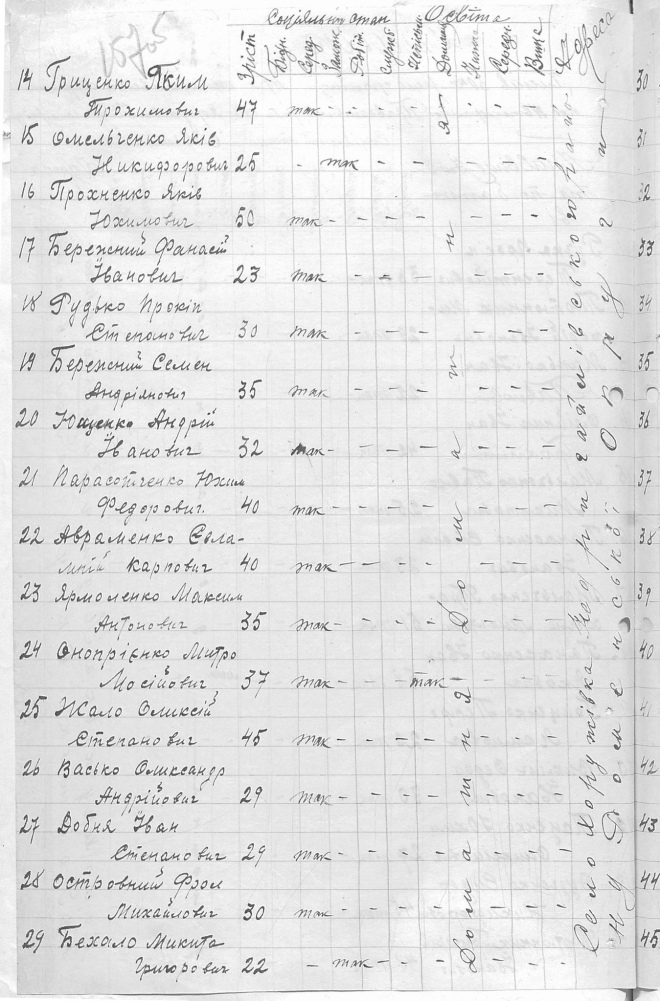 Соціяльний стан Освіта
Зріст Бідн. Серед. Замож. Робіт. Служб. Домашн. Нижча Середн. Вища Адреса
14 Гриценко Яким
Трохимович 47 так - - - - - - -
15 Омельченко Яків
Никифорович 25 - так - - - - - -
16 Прохненко Яків
Юхимович 50 так - - - - - - -
17 Бережний Фанасій
Іванович 23 так - - - - - -
18 Рудько Прокіп
Степанович 30 так - - - - - - -
19 Бережний Семен
Андріянович 35 так - - - - - - -
20 Ющенко Андрій
Іванович 32 так - - - - - - -
21 Парасотченко Юхим
Федорович 40 так - - - - - - -
22 Авраменко Єла-
мпій Карпович 40 так - - - - - - -
23 Ярмоленко Максим
Антонович 35 так - - - - - - -
24 Онопрієнко Митро
Мосійович 37 так - - - так - -
25 Жало Оликсій
Степанович 45 так - - - - - - -
26 Васько Олександр
Андрійович 29 так - - - - - - -
27 Добня Іван
Степанович 29 так - - - - - - -
28 Островний Фрол
Михайлович 30 так - - - - - - -
29 Бехало Микита
Григорович 22 - так - - - - - -
Домашня Домашня
Село Хоружівка Недригайлівського райо-
ну Роменської Округи
30
31
32
33
34
35
36
37
38
39
40
41
42
43
44
45